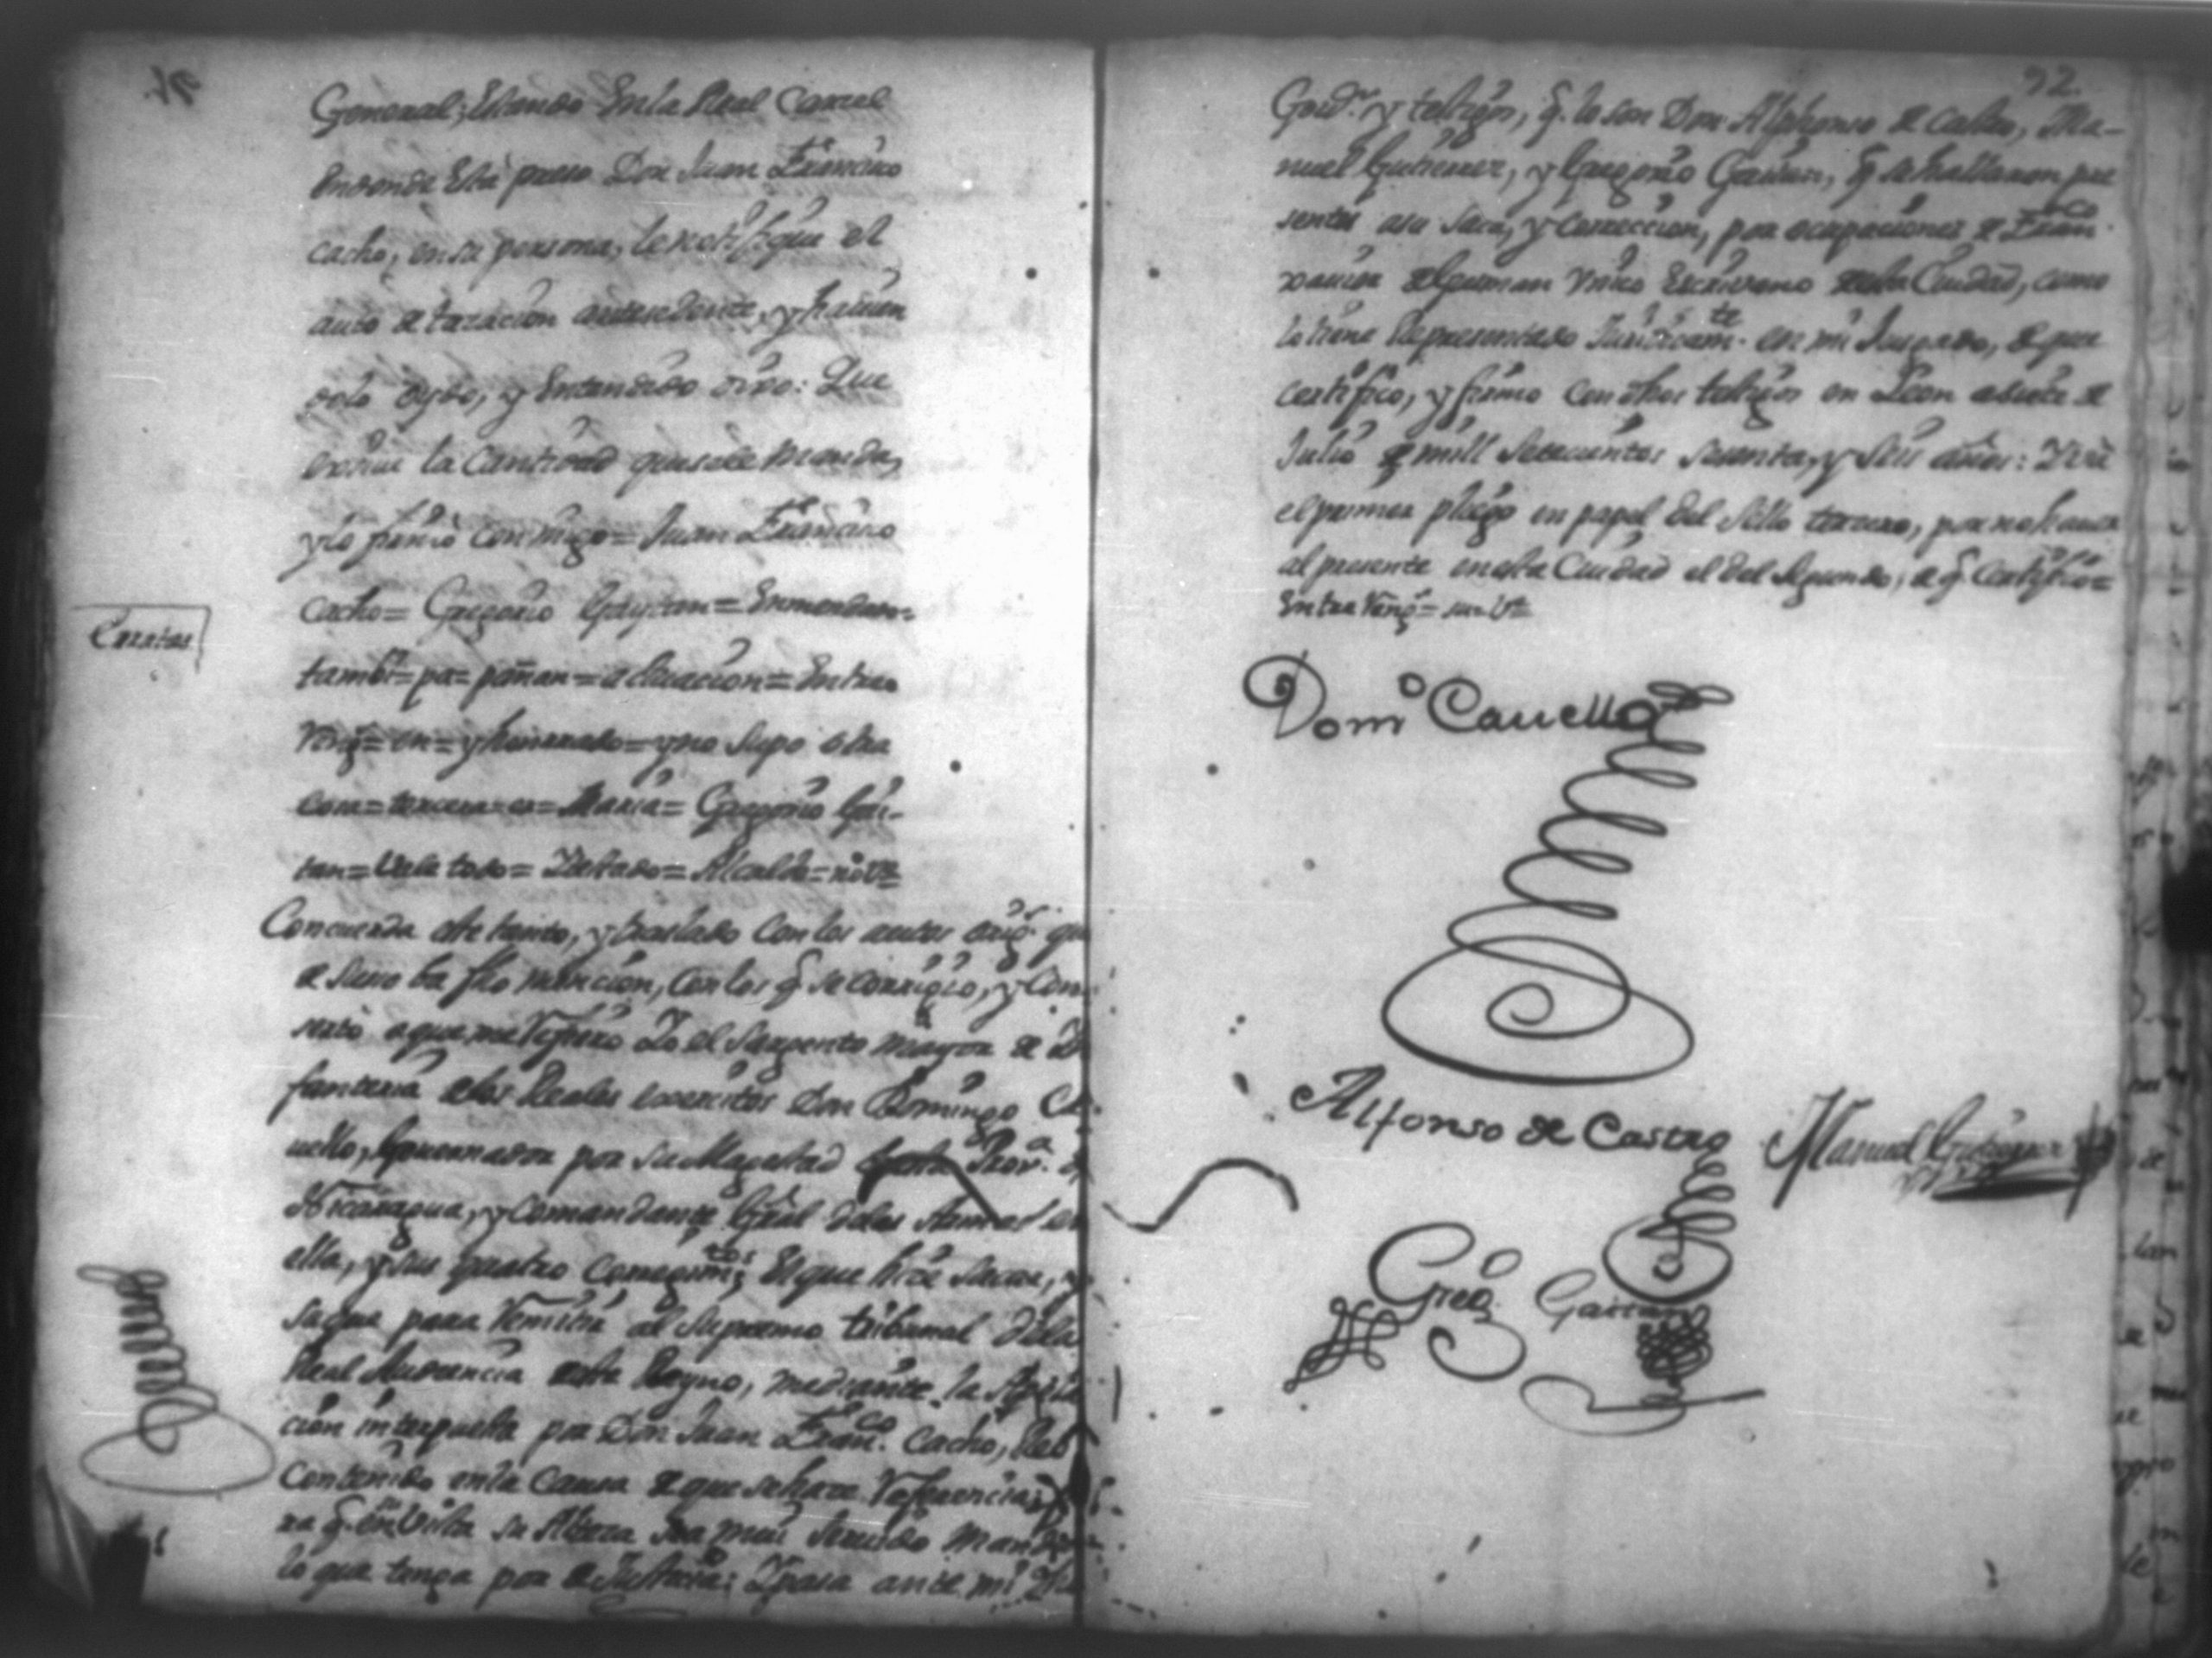 General; Estando En la Real Carcel
endonde Está preso Don Juan Francisco
cacho, en su persona, le notifiqué el
auto de tazacion antesedente, y havien
dolo oydo, y Entendido dixo: Que
la Cantidad que se le manda,
y lo firmó conmigo = Juan Francisco
Cacho = Gregorio Gaytan = Enmendan.
Erratas
tambn = pa = pañan = aclaracion = Entra
Rengs = en = y = y no supo otra
cosa = tercera = es = Maria = Gregorio Gai-
tan = Vale todo = Testado = Alcalde = no Ve
Concuerda este tanto, y traslado con los autos origs. que
de suso ba fho mencion, con los q. se corrigió, y Con
sertó a que me refiero Yo el Sargento mayor de In
fanteria de los Reales exercitos Don Domingo Ca
uello, Governador por su Magestad desta Prova. de
Nicaragua, y Comandante Gral de las Armas en
ella, y sus quatro Corregimtos; El que hize sacar, y
saqué para remitir al Supremo tribunal de la
Real Audiencia deste Reyno, mediante la Apela
cion interpuesta por Don Juan Franco. Cacho, Reo
Contenido en la Causa de que se haze referencia, pa
ra q. en vista su Alteza sea mui servido mandar
lo que tenga por de Justicia: Y pasa ante mi Dho
92
Govr. y testigos, q. lo son Don Alphonso de Castro, Ma-
nuel Gutierrez, y Gregorio Gaitan, q. se hallaron pre
sentes a su saca, y Correccion, por ocupaciones de Franco.
xavier de Guzman Unico Escrivano desta Ciudad, como
lo tiene Representado Juridicamte. en mi Juzgado, de que
certifico, y firmo con dhos testigos en Leon a siete de
Julio de mill setecientos sesenta, y seis años: Y va
el primer pliego en papel del Sello tercero, por no haver
al presente en esta Ciudad el del Segundo; de q. Certifico =
Entra Rengs =
Domo Cauello
Alfonso de Castro
Manuel Gutierrez
Grego Gaitan